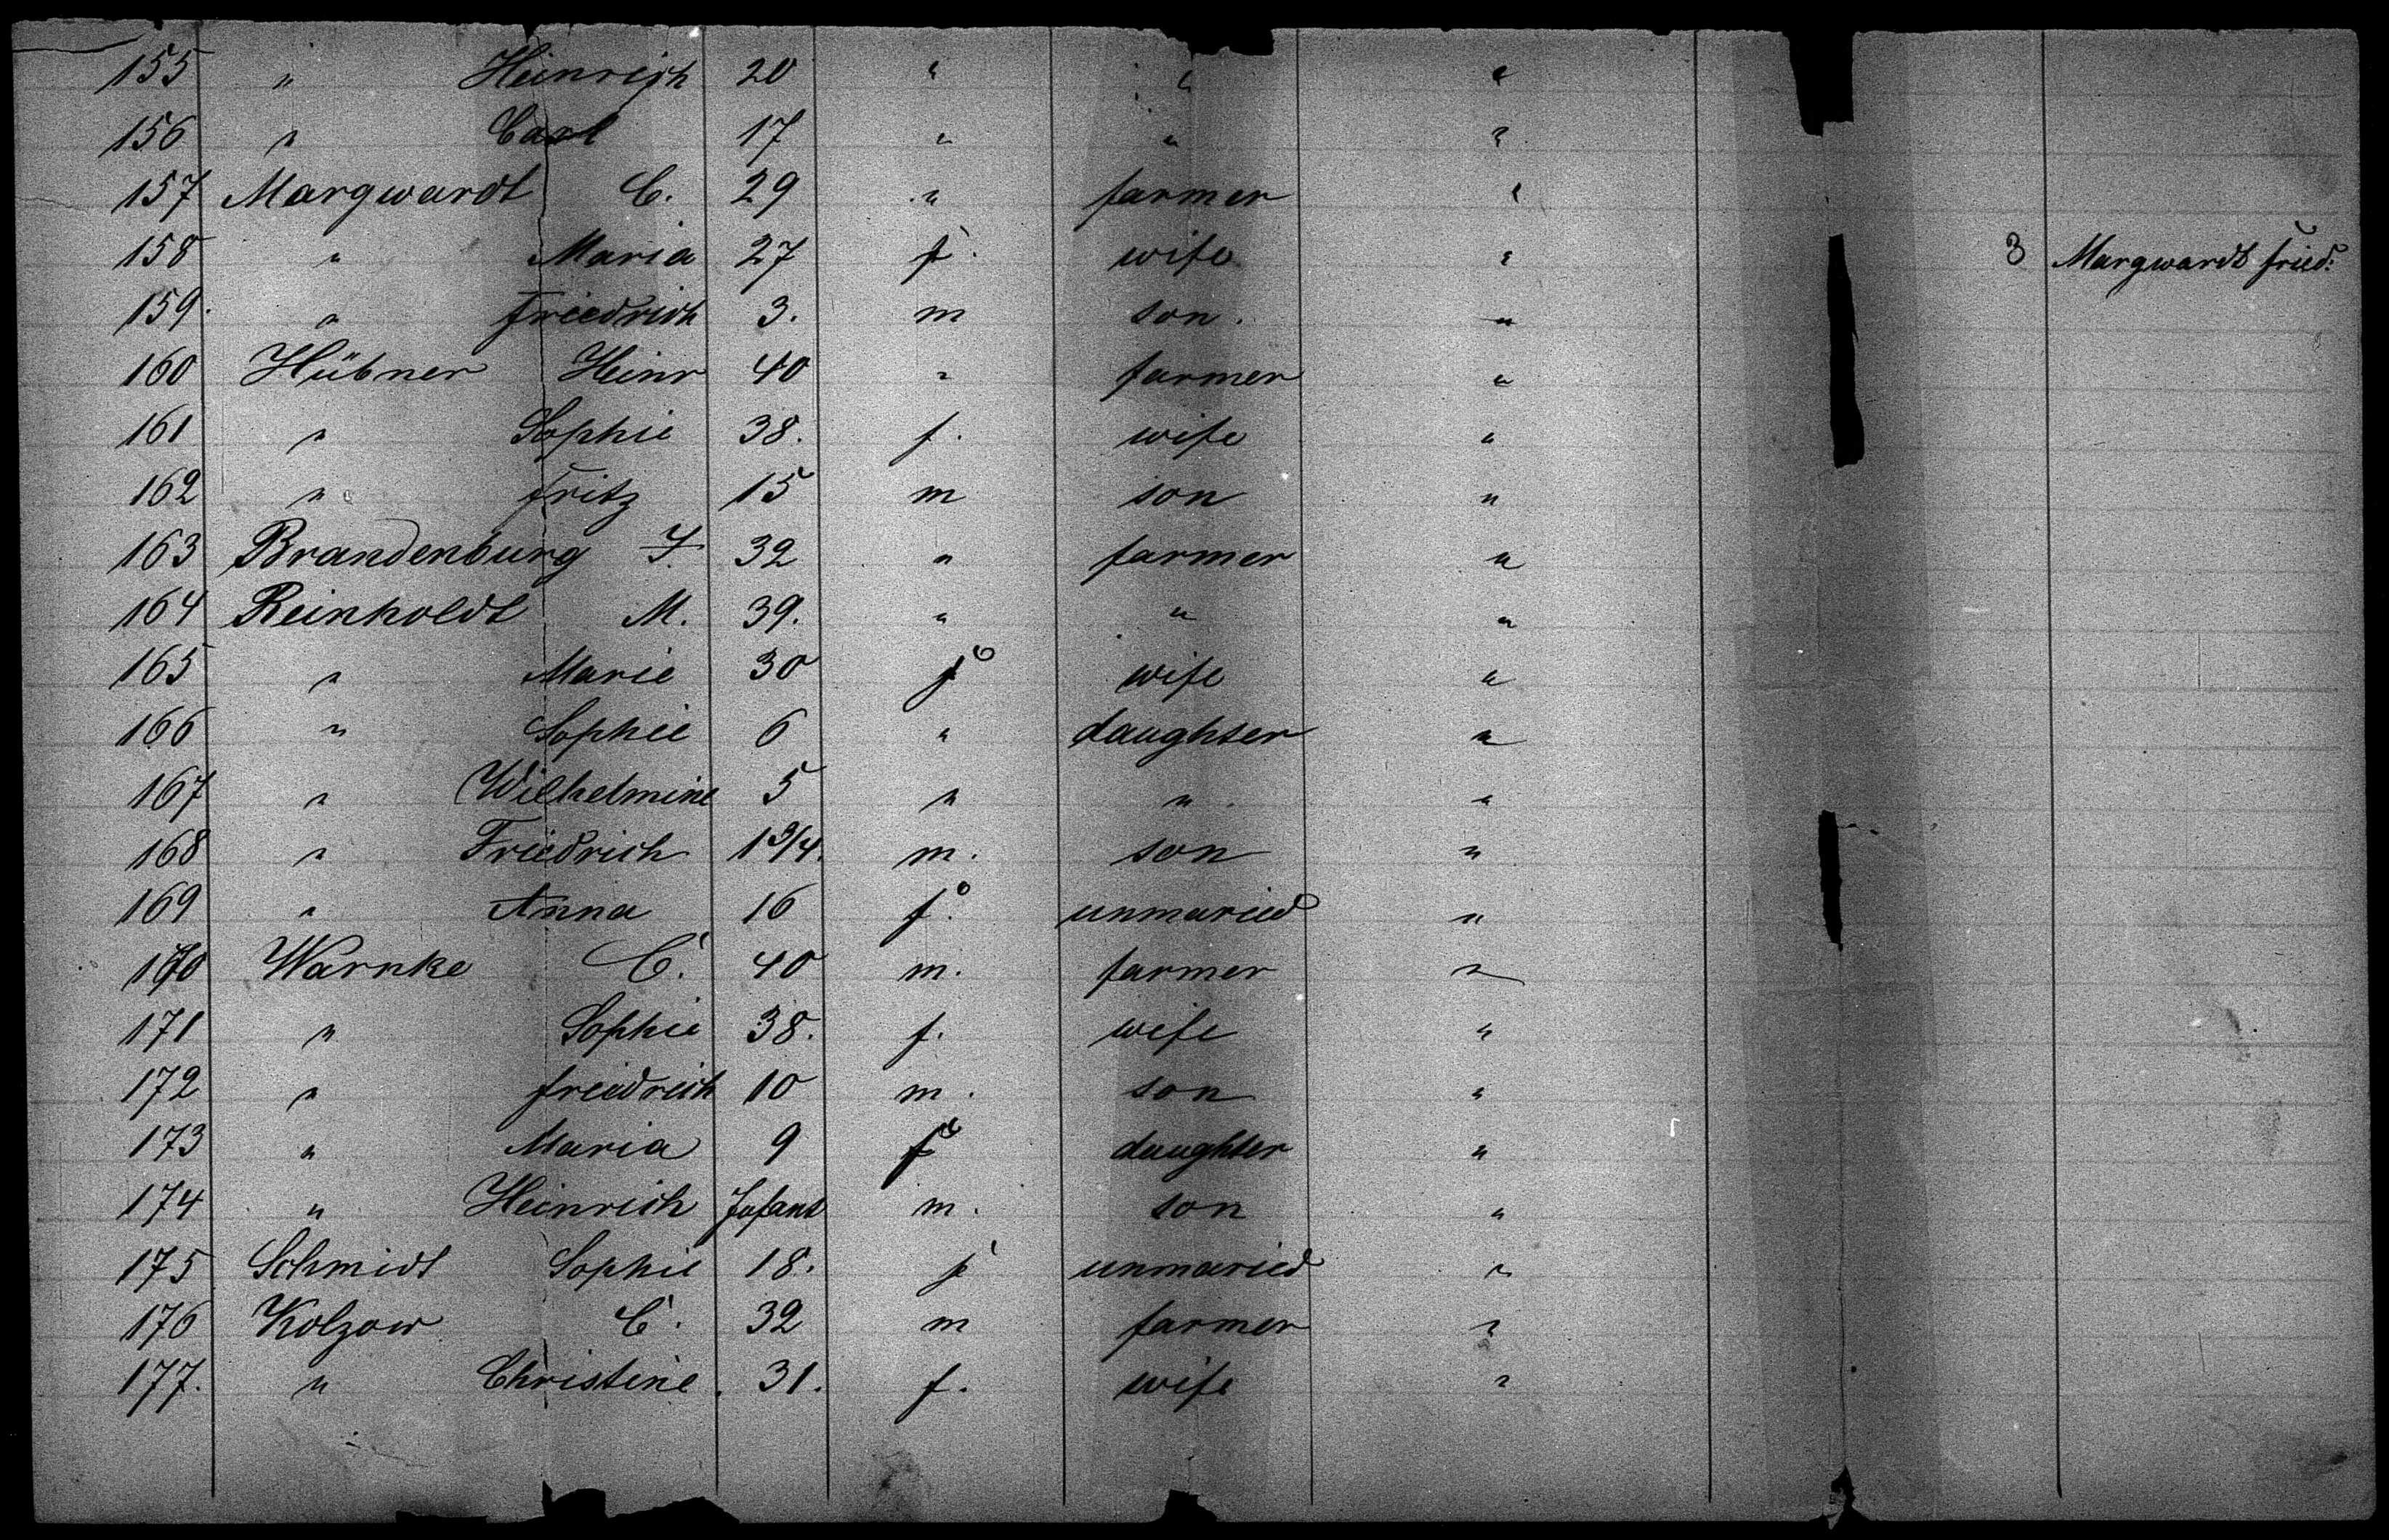 155 " Heinrich 20 " " "
156 " Carl 17 " " "
157 Margwardt C. 29 " farmer "
158 " Maria 27 f. wife " 3 Margwardt Fried:
159. " Friedrich 3. m son. "
160 Hübner Heinr 40 " farmer "
161 " Sophie 38. f. wife "
162 " Fritz 15 m son "
163 Brandenburg J. 32 " farmer "
164 Reinholdt M. 39. " " "
165 " Marie 30 f wife "
166 " Sophie 6 " daughter "
167 " Wilhelmine 5 " " "
168 " Friedrich 1 3/4. m. son "
169 " Anna 16 f. unmaried "
170 Warnke C. 40 m. farmer "
171 " Sophie 38. f. wife "
172 " Friedrich 10 m. son "
173 " Maria 9 f daughter "
174 " Heinrich Infant m. son "
175 Schmidt Sophie 18. f unmaried "
176 Kolzow C. 32 m farmer "
177. " Christine. 31. f. wife "